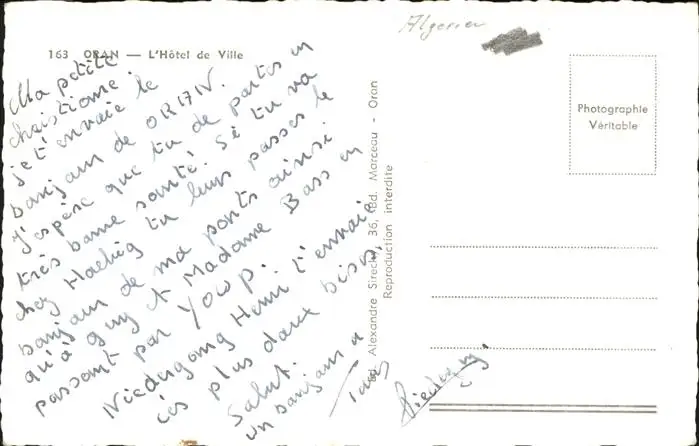 Algerien
163 ORAN — L'Hôtel de Ville
Ma petite
christiane.
je t'envoie le
bonjour de ORAN.
J'espère que tu de portes en
très bonne santé. Si tu va
chez Haelvig tu leurs passes le
bonjour de ma parts ainsi
qu'à guy et Madame Bass en
passant par Youp.
Niedergang Henri t'envoie
ces plus doux bisous.
Salut.
un bonjour a
Tous
Ed. Alexandre Sirecky, 36, Bd. Marceau - Oran
Reproduction interdite
Photographie
Véritable